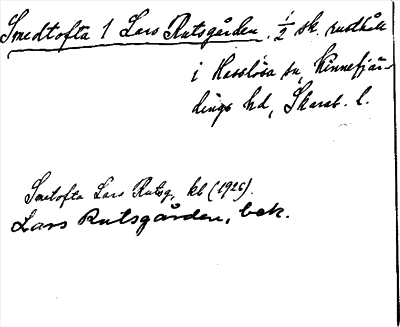 Smedtofta 1 Lars Rutsgården. ½ sk. rusthåll
i Hasslösa sn, Kinnefjär-
dings hd, Skarab. l.
Smetofta Lars Rutsg, kb (1926).
Lars Rutsgården, bek.